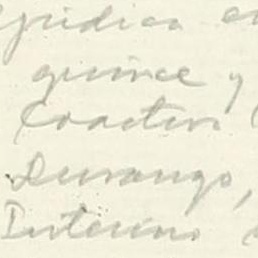 jurídica en
quince y
Coactiva
Durango,
Interino